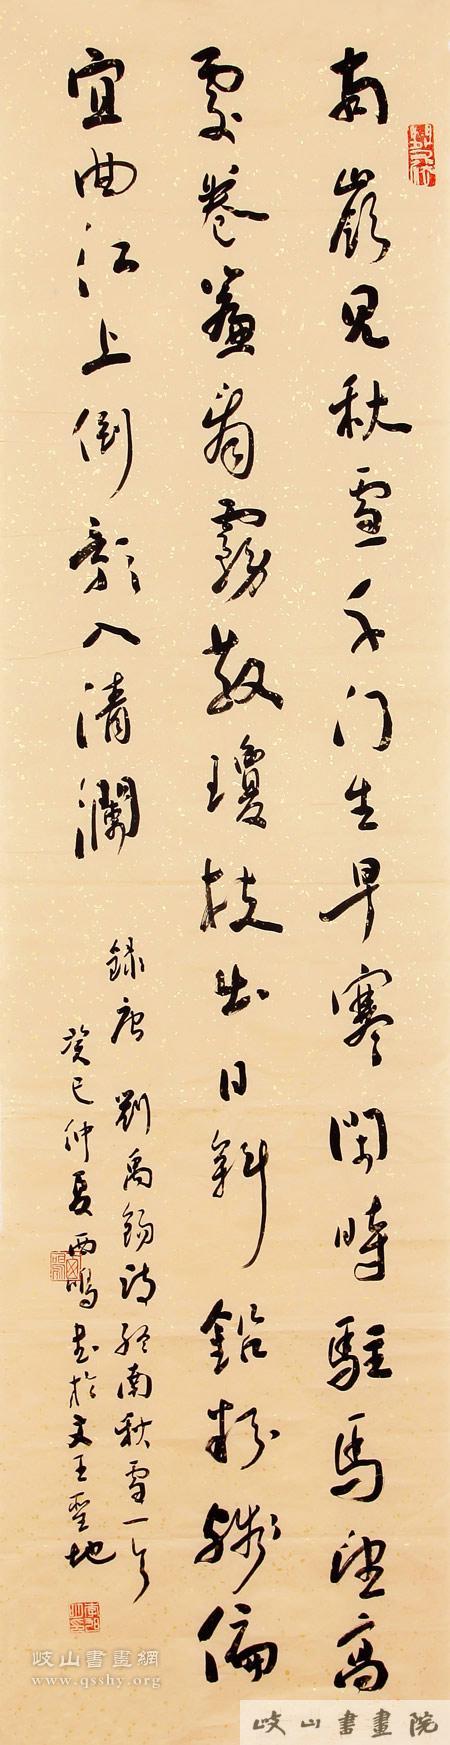 南嶺見秋雪千門生早寒閑時駐馬望高
處卷簾看霧散瓊枝出日斜鉛粉殘偏
宜曲江上倒影入清瀾
錄唐劉禹錫詩終南秋雪一首
癸巳仲夏西鳴書於文王聖地
岐山書畫網
www.qsshy.org
岐山書畫院